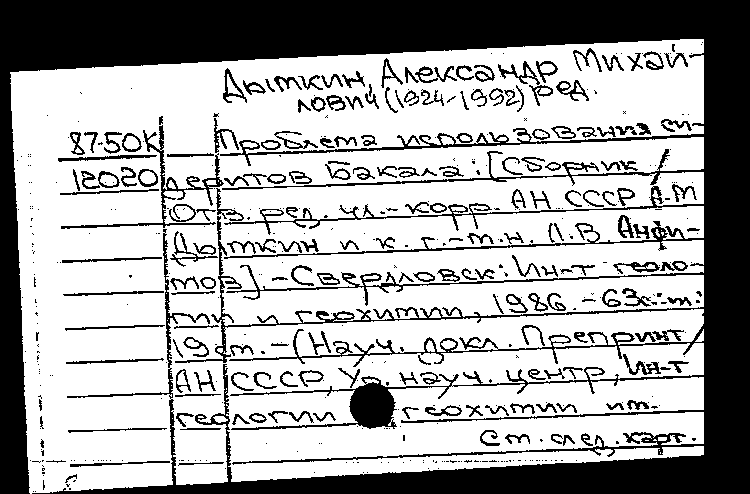 Дымкин, Александр Михай-
лович (1924-1992) ред.
87-50К Проблема использования си-
12020 деритов Бакала: [Сборник /
Отв. ред. чл.-корр. АН СССР А.М
Дымкин и к. г.-м.н. Л.В. Анфи-
мов]. - Свердловск: Ин-т геоло-
гии и геохимии, 1986. - 63с.: ил.;
19 см. - (Науч. докл. Препринт /
АН СССР, Ур. науч. центр, Ин-т
геологии геохимии им.
См. след. карт.